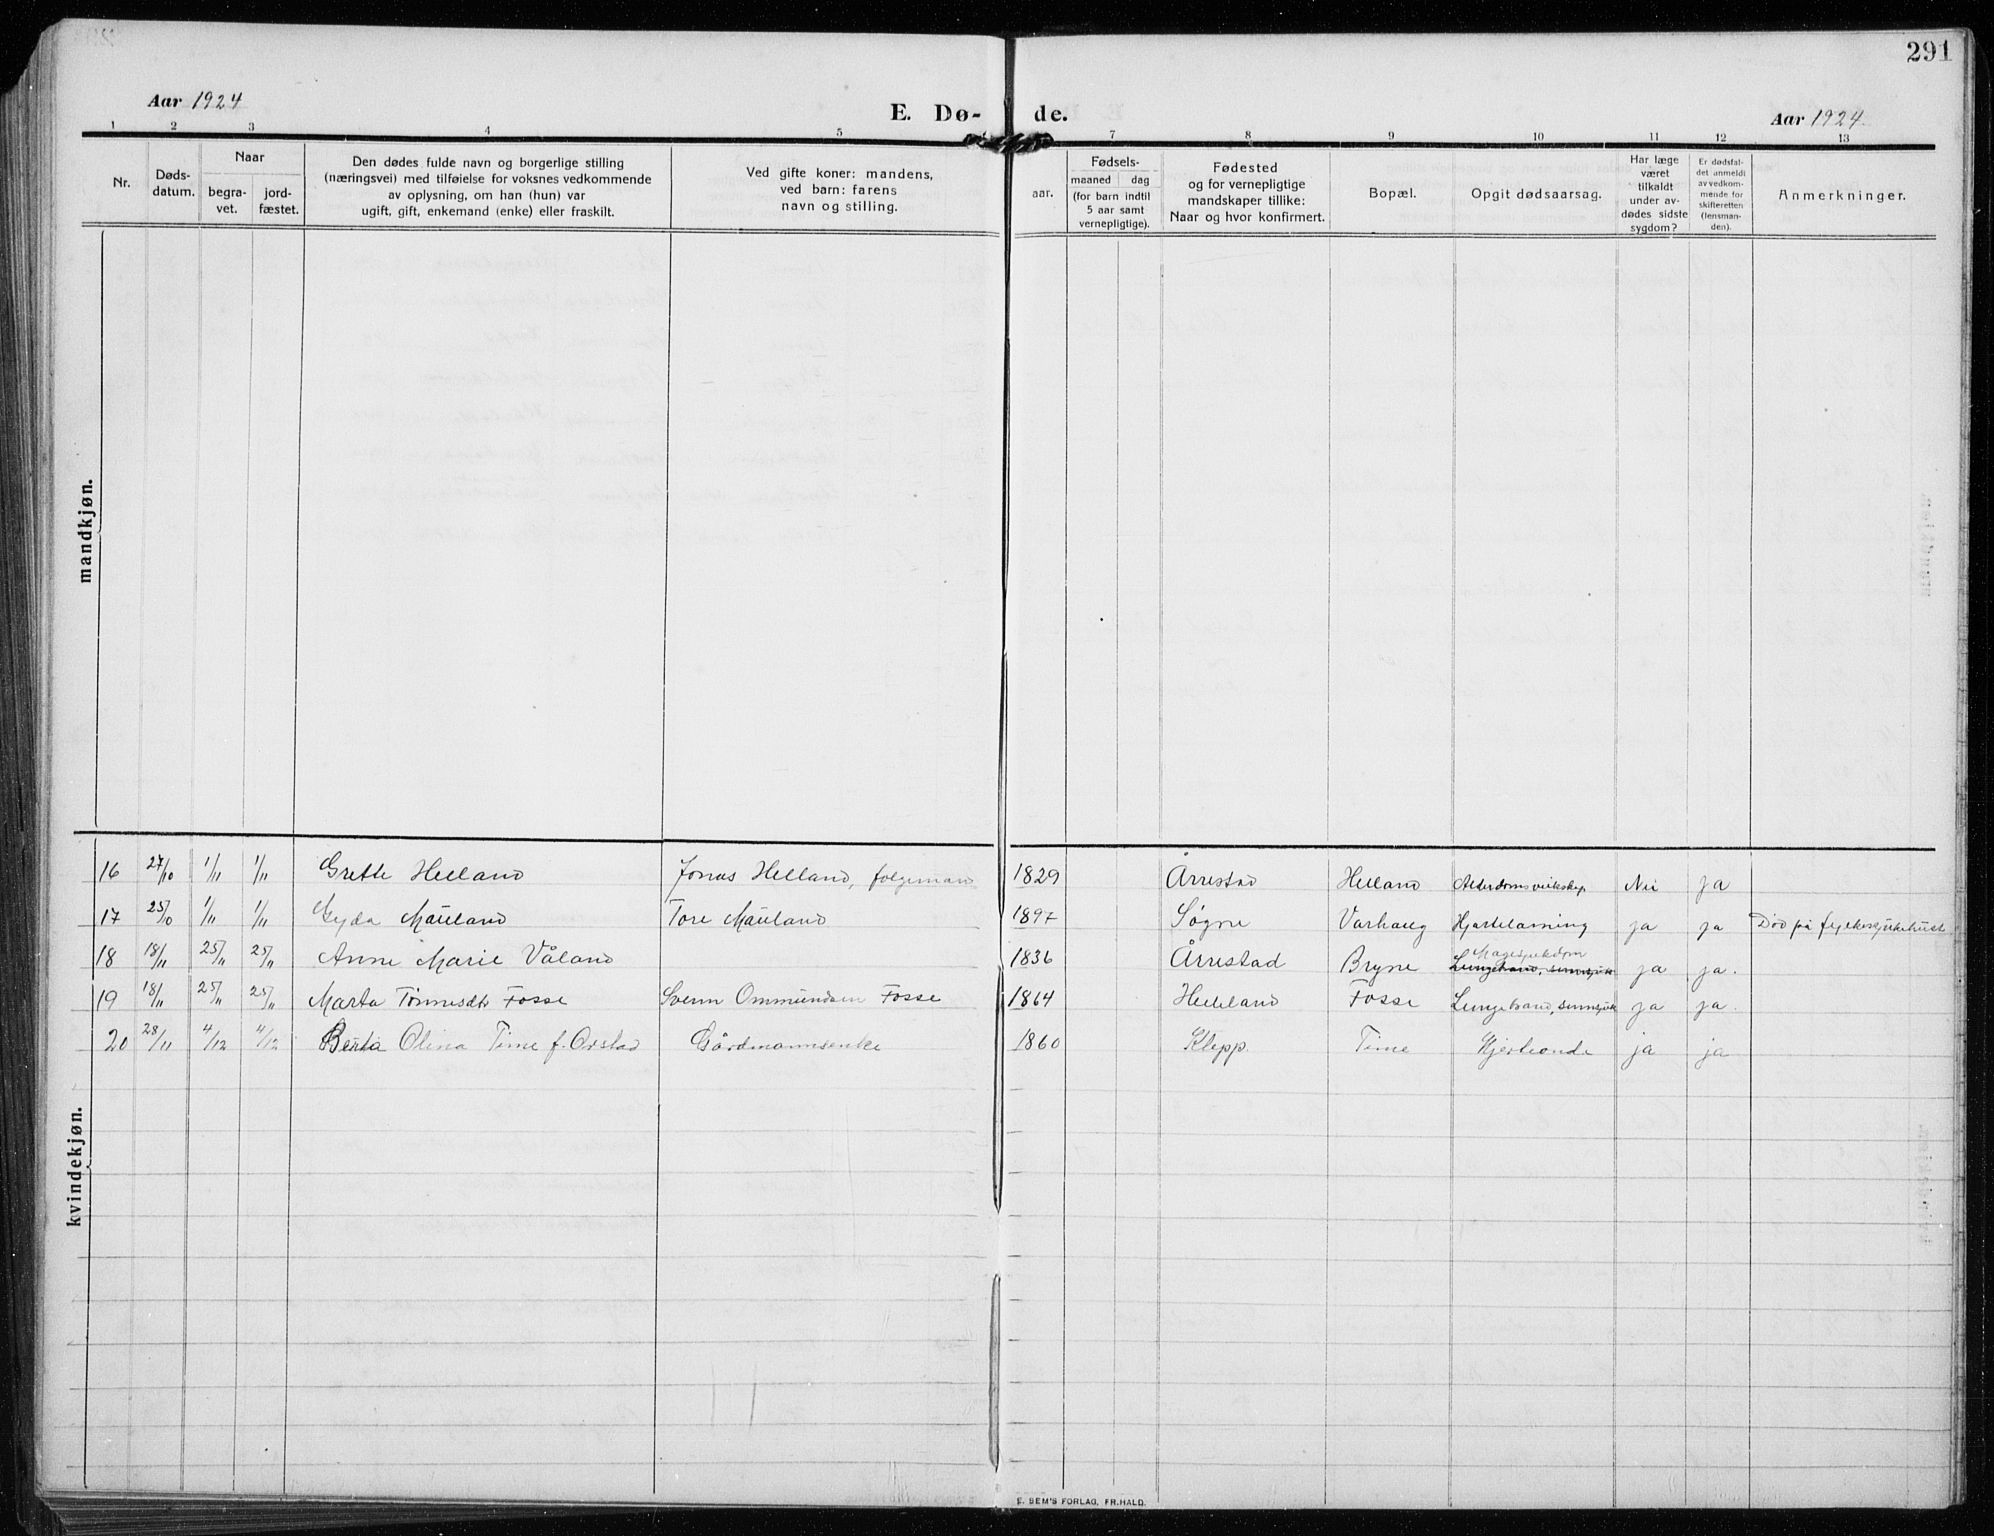 291
Aar 1924
E. Dø-
de.
Aar 1924.
1 2 3 4 5 7 8 9 10 11 12 13
Nr.
Døds-
datum.
Naar
begra-
vet.
jord-
fæstet.
Den dødes fulde navn og borgerlige stilling
(næringsvei) med tilføielse for voksnes vedkommende
av oplysning, om han (hun) var
ugift, gift, enkemand (enke) eller fraskilt.
Ved gifte koner: mandens,
ved barn: farens
navn og stilling.
aar.
Fødsels-
maaned dag
(for barn indtil
5 aar samt
vernepligtige).
Fødested
og for vernepligtige
mandskaper tillike:
Naar og hvor konfirmert.
Bopæl.
Opgit dødsaarsag.
Har læge
været
tilkaldt
under av-
dødes sidste
sygdom?
Er dødsfal-
det anmeldt
av vedkom-
mende for
skifteretten
(lensman-
den).
Anmerkninger.
mandkjøn.
kvindekjøn.
16 27/10 1/11 1/11 Grette Helland Jonas Helland, folgemann 1829 Årrestad Helland Alderdomsveikskap Nei ja
17 25/10 1/11 1/11 Gyda Mauland Tore Mauland 1897 Søgne Varhaug Hjartelaming ja ja Død på fylkessjukehuset
18 18/11 25/11 25/11 Anne Marie Våland 1836 Årrestad Bryne Magesjukdom
Lungebrand, ja ja.
19 18/11 25/11 25/11 Marta Tønnesdtr Fosse Svenn Ommundsen Fosse 1864 Helleland Fosse Lungebrand, ja ja.
20 28/11 4/12 4/12 Berta Olina Time f. Orstad Gårdmannsenke 1860 Klepp. Time Hjerteonde ja ja
E. SEM'S FORLAG, FR.HALD.